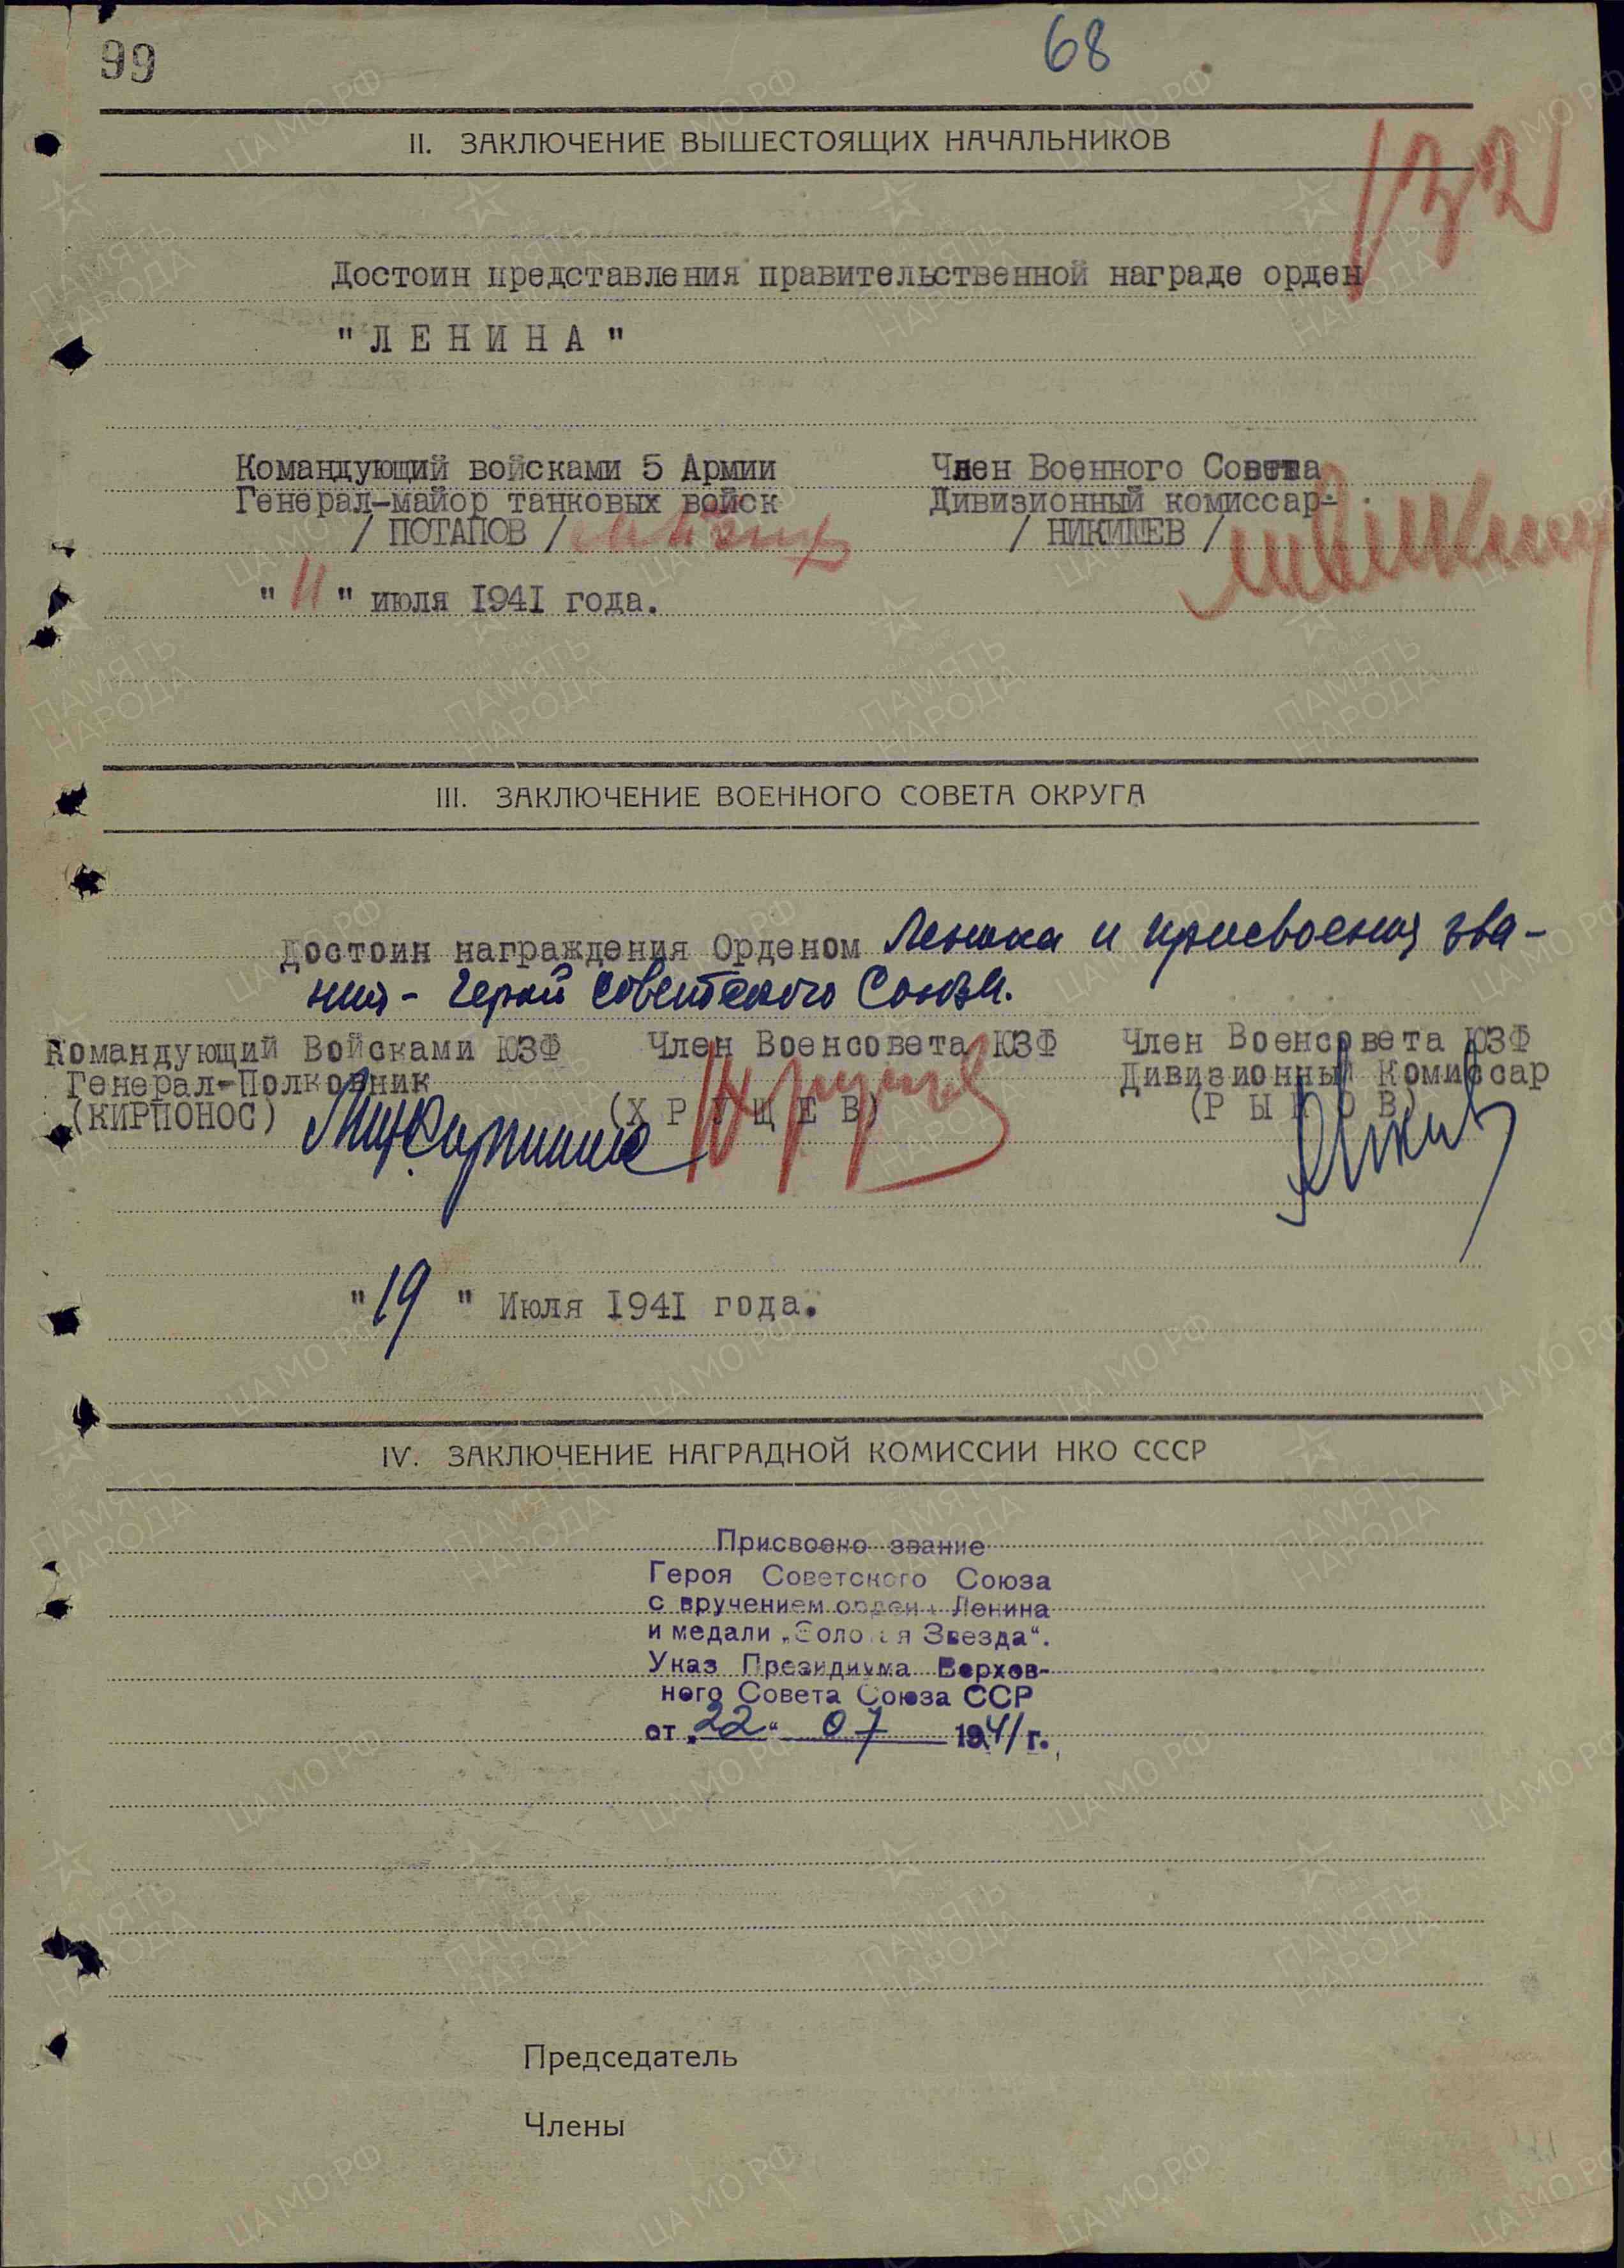 99
68
132
II. ЗАКЛЮЧЕНИЕ ВЫШЕСТОЯЩИХ НАЧАЛЬНИКОВ
Достоин представления правительственной награде орден
"ЛЕНИНА"
Командующий войсками 5 Армии
Генерал-майор танковых войск
/ ПОТАПОВ /
Член Военного Совета
Дивизионный комиссар-
/ НИКИШЕВ /
" 11 " июля 1941 года.
III. ЗАКЛЮЧЕНИЕ ВОЕННОГО СОВЕТА ОКРУГА
Достоин награждения Орденом Ленина и присвоения зва-
ния - Герой Советского Союза.
Командующий Войсками ЮЗФ
Генерал-Полковник
(КИРПОНОС)
Член Военсовета ЮЗФ
(ХРУЩЕВ)
Член Военсовета ЮЗФ
Дивизионный Комиссар
(РЫКОВ)
" 19 " Июля 1941 года.
IV. ЗАКЛЮЧЕНИЕ НАГРАДНОЙ КОМИССИИ НКО СССР
Присвоено звание
Героя Советского Союза
с вручением ордена Ленина
и медали „Золотая Звезда“.
Указ Президиума Верхов-
ного Совета Союза ССР
от „22“ 07 1941 г.
Председатель
Члены
ЦА МО РФ
ПАМЯТЬ
НАРОДА